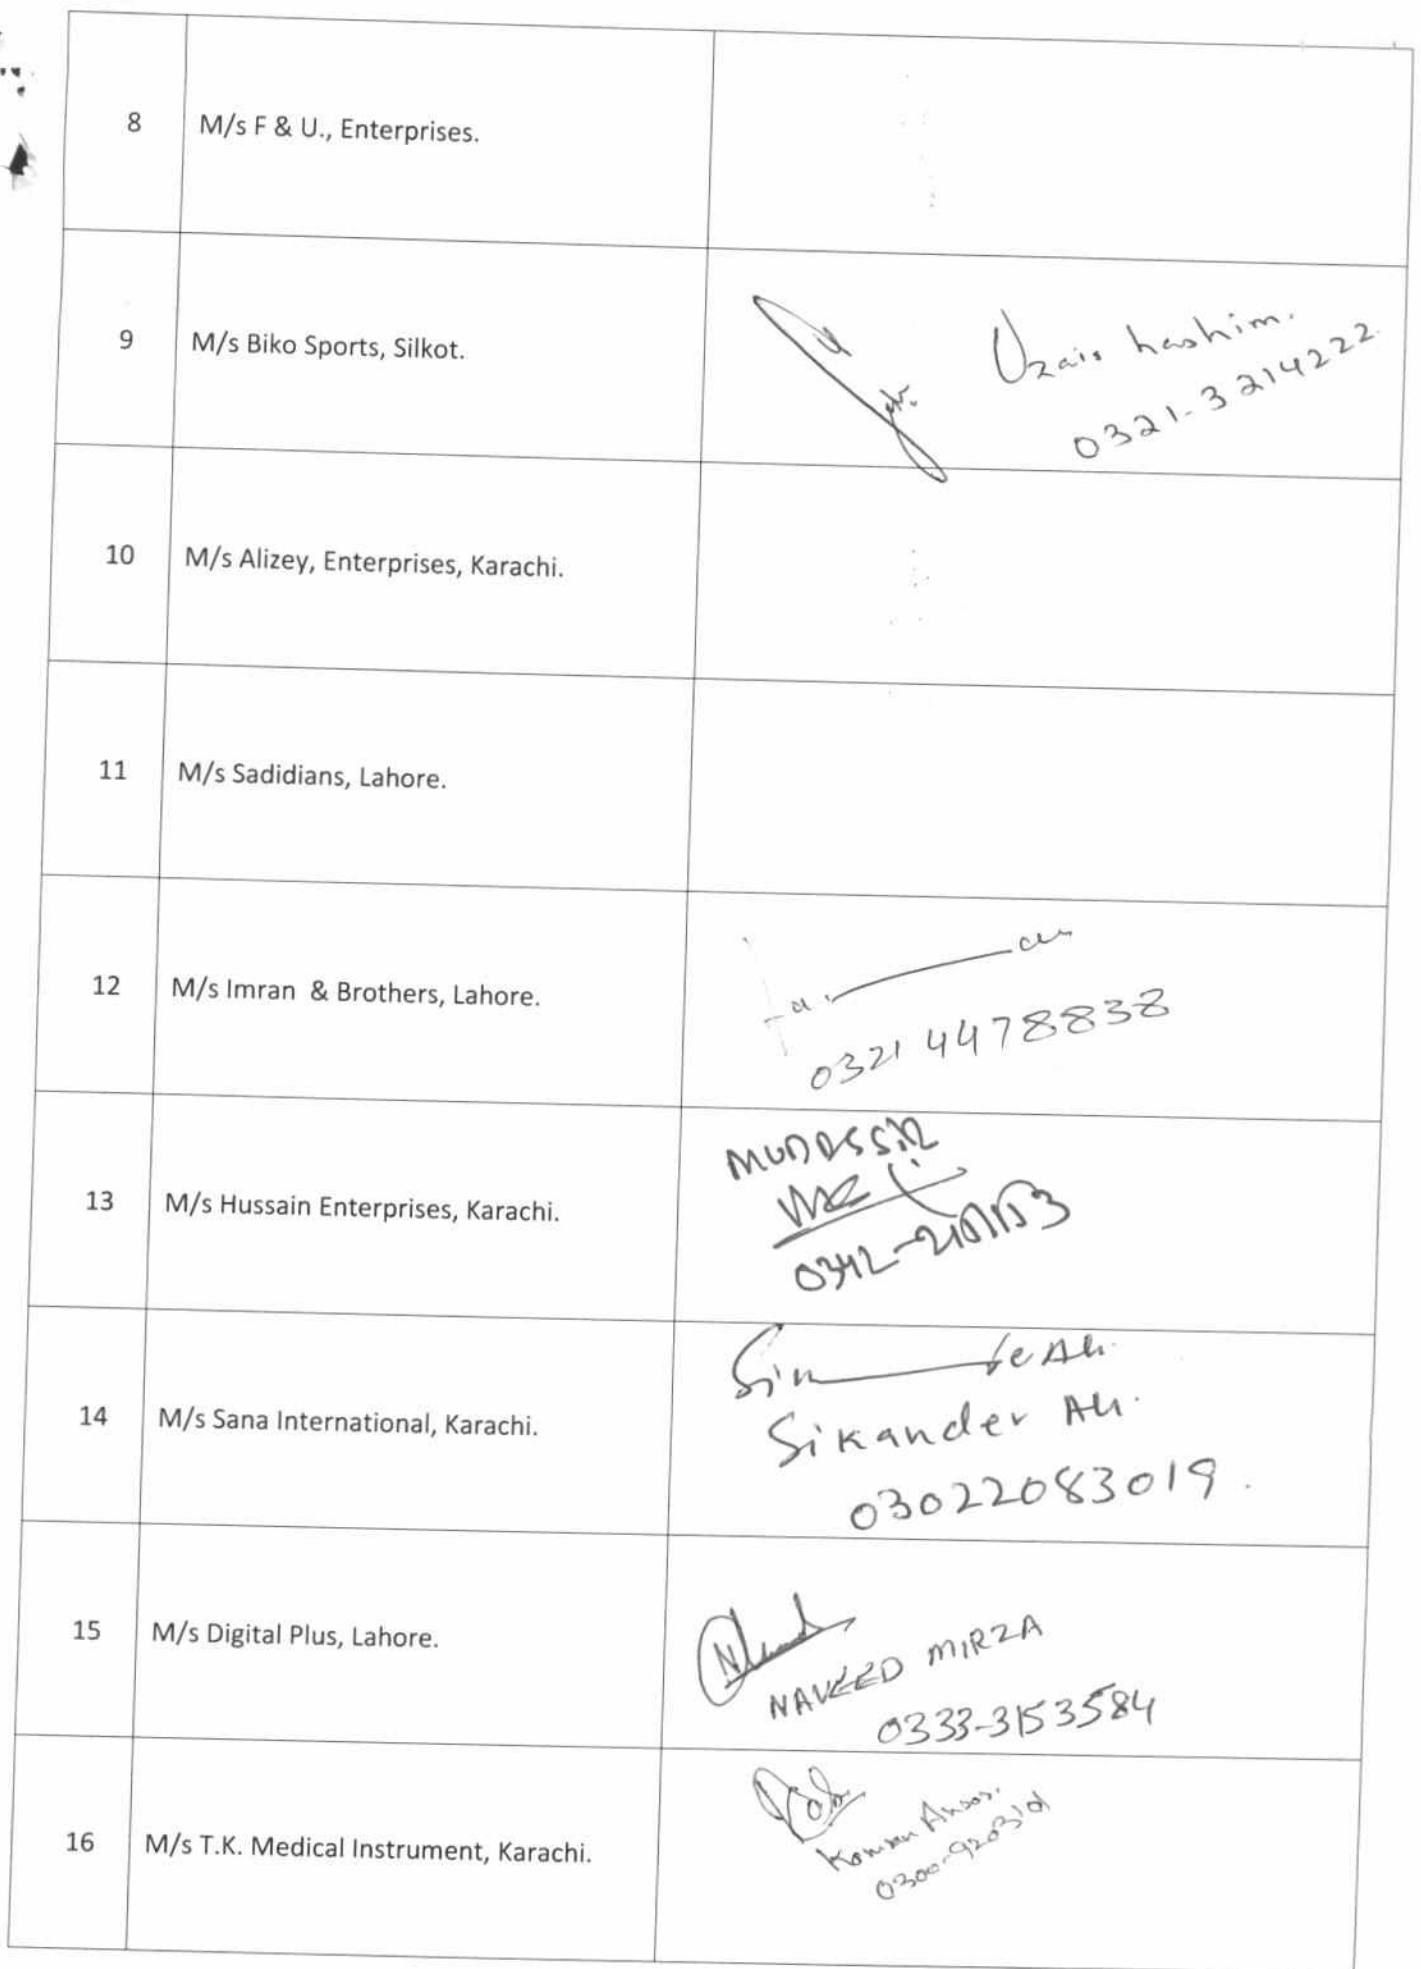 8 M/s F & U., Enterprises.
9 M/s Biko Sports, Silkot.
Uzair hashim.
0321-3214222
10 M/s Alizey, Enterprises, Karachi.
11 M/s Sadidians, Lahore.
12 M/s Imran & Brothers, Lahore.
0321 4478838
13 M/s Hussain Enterprises, Karachi.
MUDASSIR
14 M/s Sana International, Karachi.
Sikander Ali.
03022083019.
15 M/s Digital Plus, Lahore.
NAVEED MIRZA
0333-3153584
16 M/s T.K. Medical Instrument, Karachi.